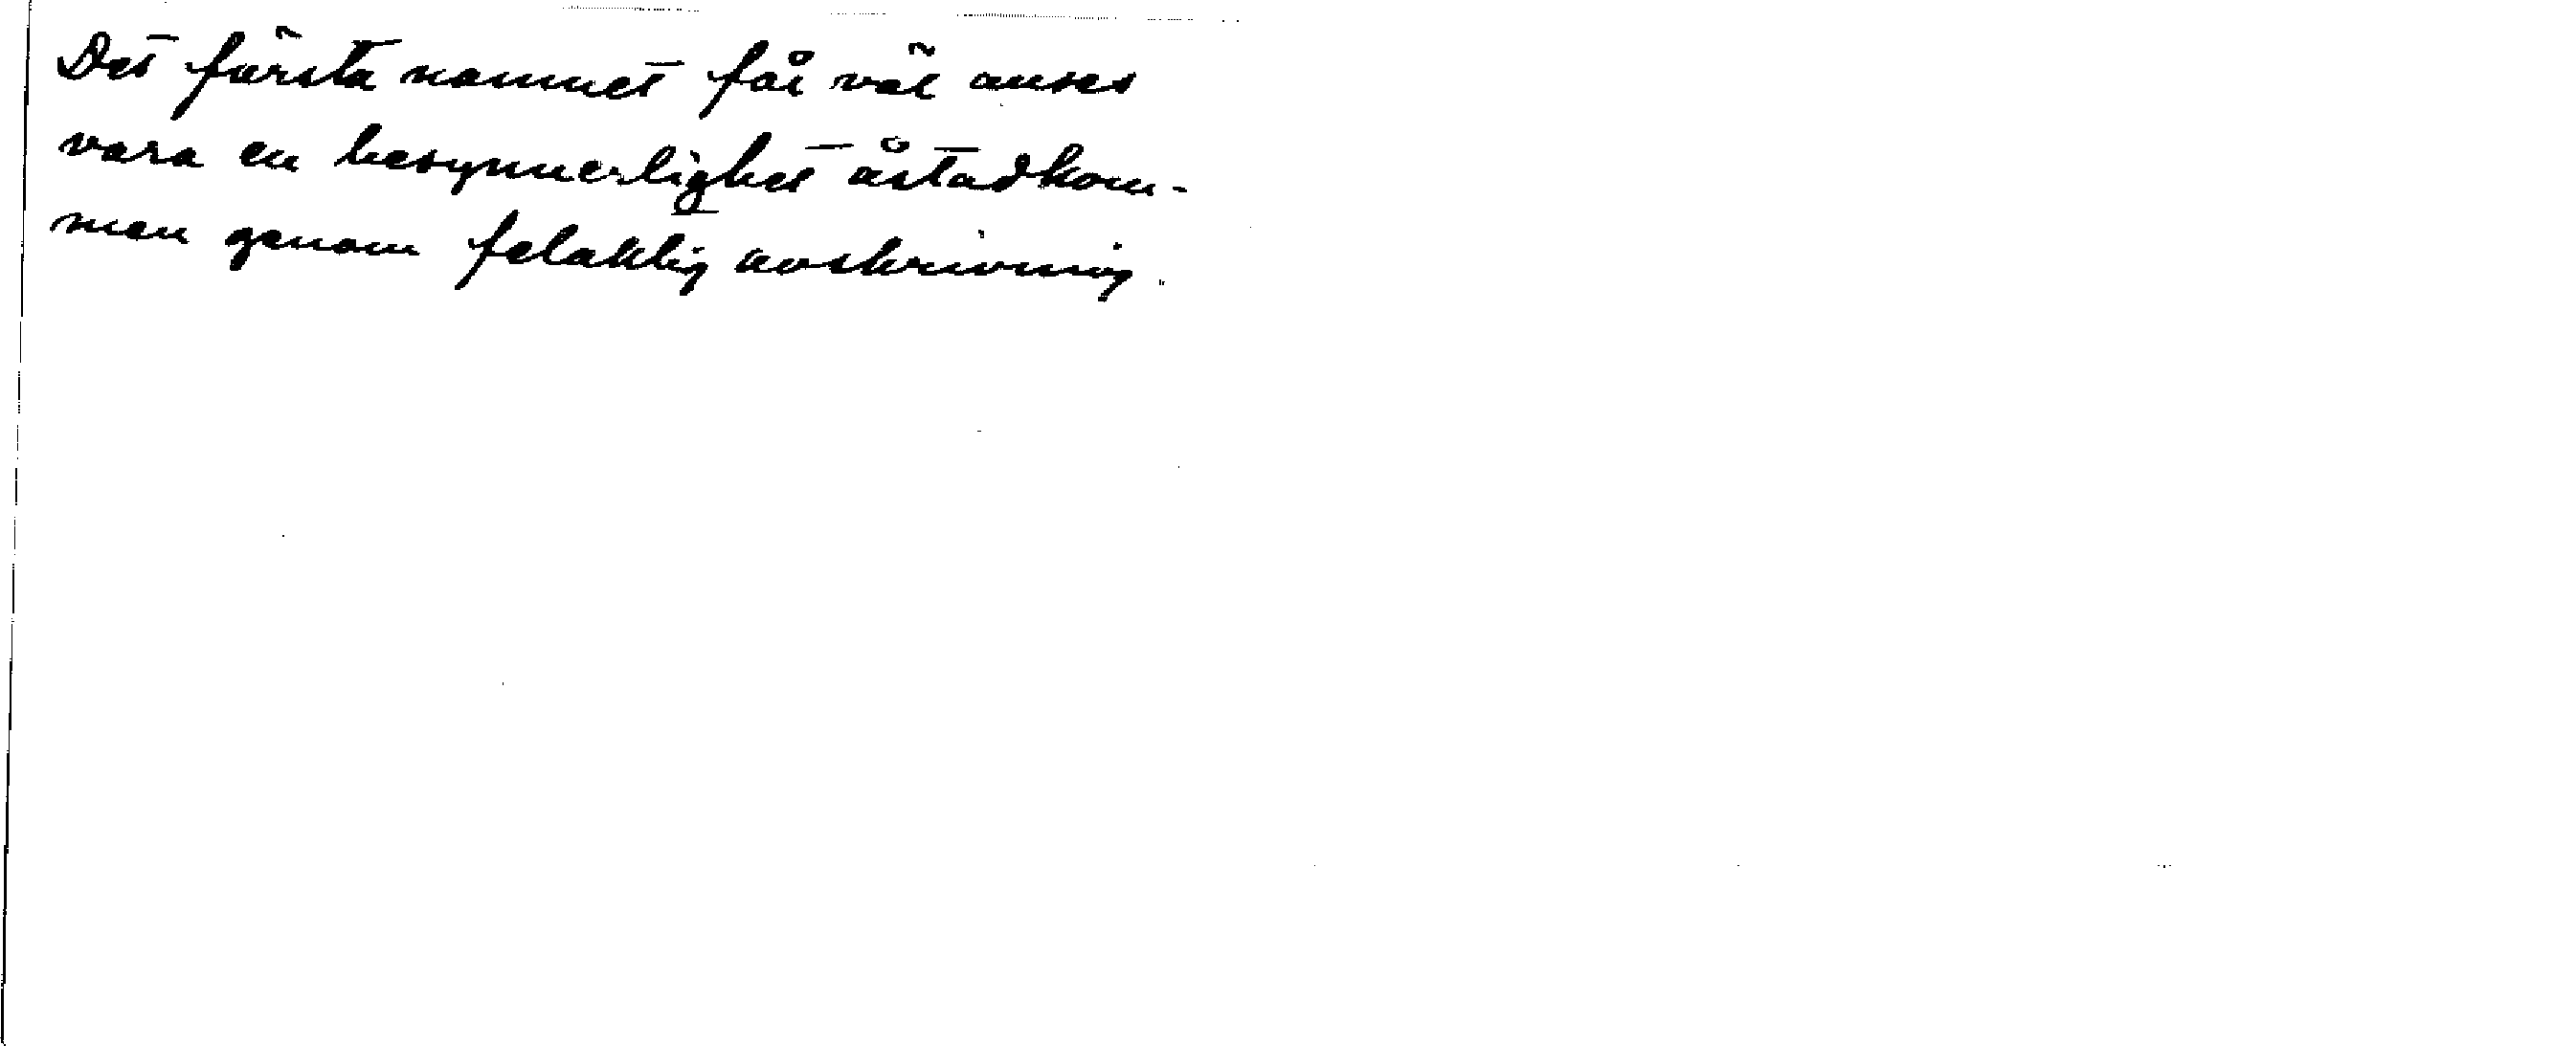 Det första namnet får väl anses
vara en besynnerlighet åstadkom-
men genom felaktig avskrivning.